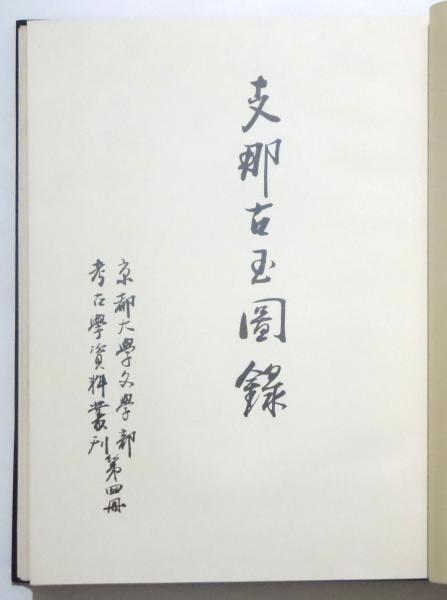 支那古玉圖錄
京都大學文學部
考古學資料叢刊第四冊